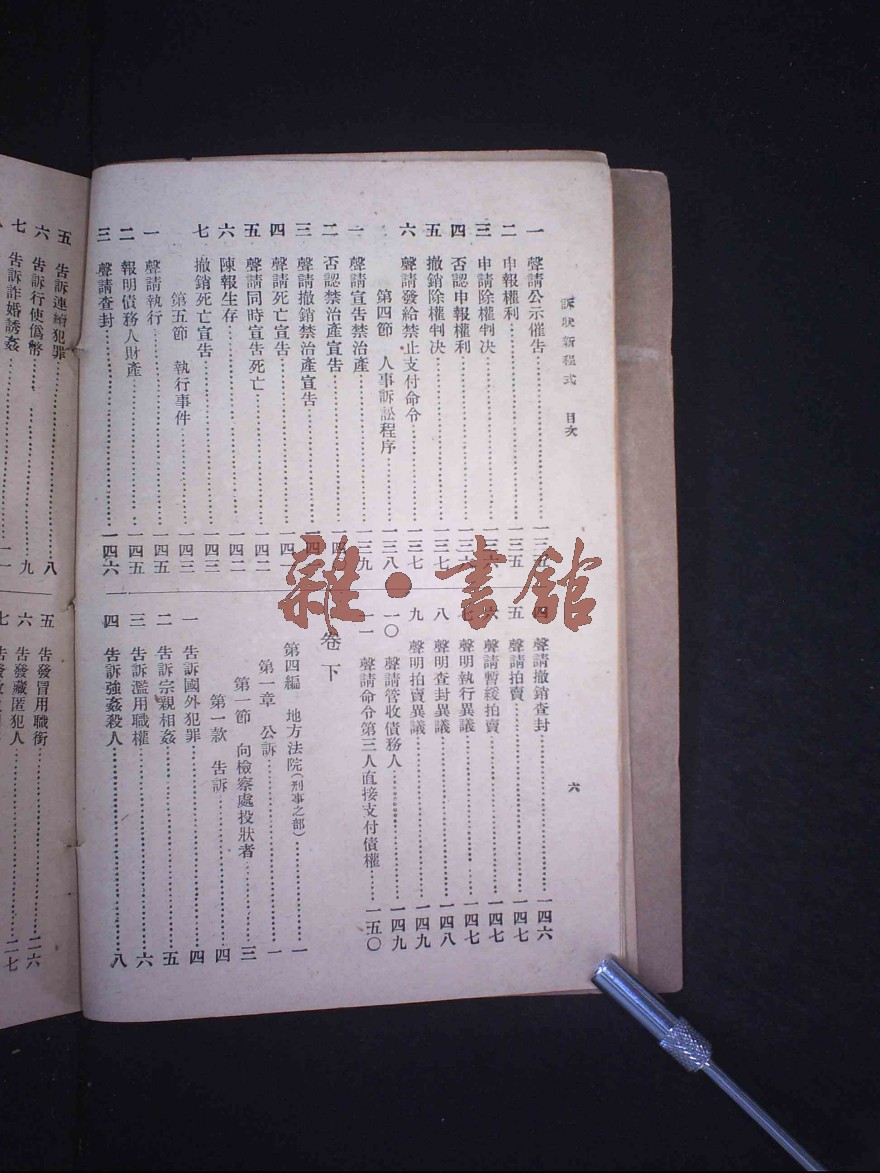 訴狀新程式 目次
六
一 聲請公示催告 一三五
二 申報權利 一三五
三 申請除權判决 一三六
四 否認申報權利 一三六
五 撤銷除權判决 一三七
六 聲請發給禁止支付命令 一三七
第四節 人事訴訟程序 一三八
一 聲請宣告禁治產 一三九
二 否認禁治產宣告 一四〇
三 聲請撤銷禁治產宣告
四 聲請死亡宣告
五 聲請同時宣告死亡 一四二
六 陳報生存 一四二
七 撤銷死亡宣告 一四三
第五節 執行事件 一四三
一 聲請執行 一四五
二 報明債務人財產 一四五
三 聲請查封 一四六
四 聲請撤銷查封 一四六
五 聲請拍賣 一四七
六 聲請暫緩拍賣 一四七
七 聲明執行異議 一四七
八 聲明查封異議 一四八
九 聲明拍賣異議 一四九
一〇 聲請管收債務人 一四九
一一 聲請命令第三人直接支付債權 一五〇
卷下
第四編 地方法院(刑事之部) 一
第一章 公訴 一
第一節 向檢察處投狀者 三
第一款 告訴 四
一 告訴國外犯罪 四
二 告訴宗親相姦 五
三 告訴濫用職權 六
四 告訴強姦殺人 八
五 告訴連續犯罪 八
六 告訴行使僞幣 九
七 告訴詐婚誘姦 一一
五 告發冒用職銜 二六
六 告發藏匿犯人 二七
雜·書館